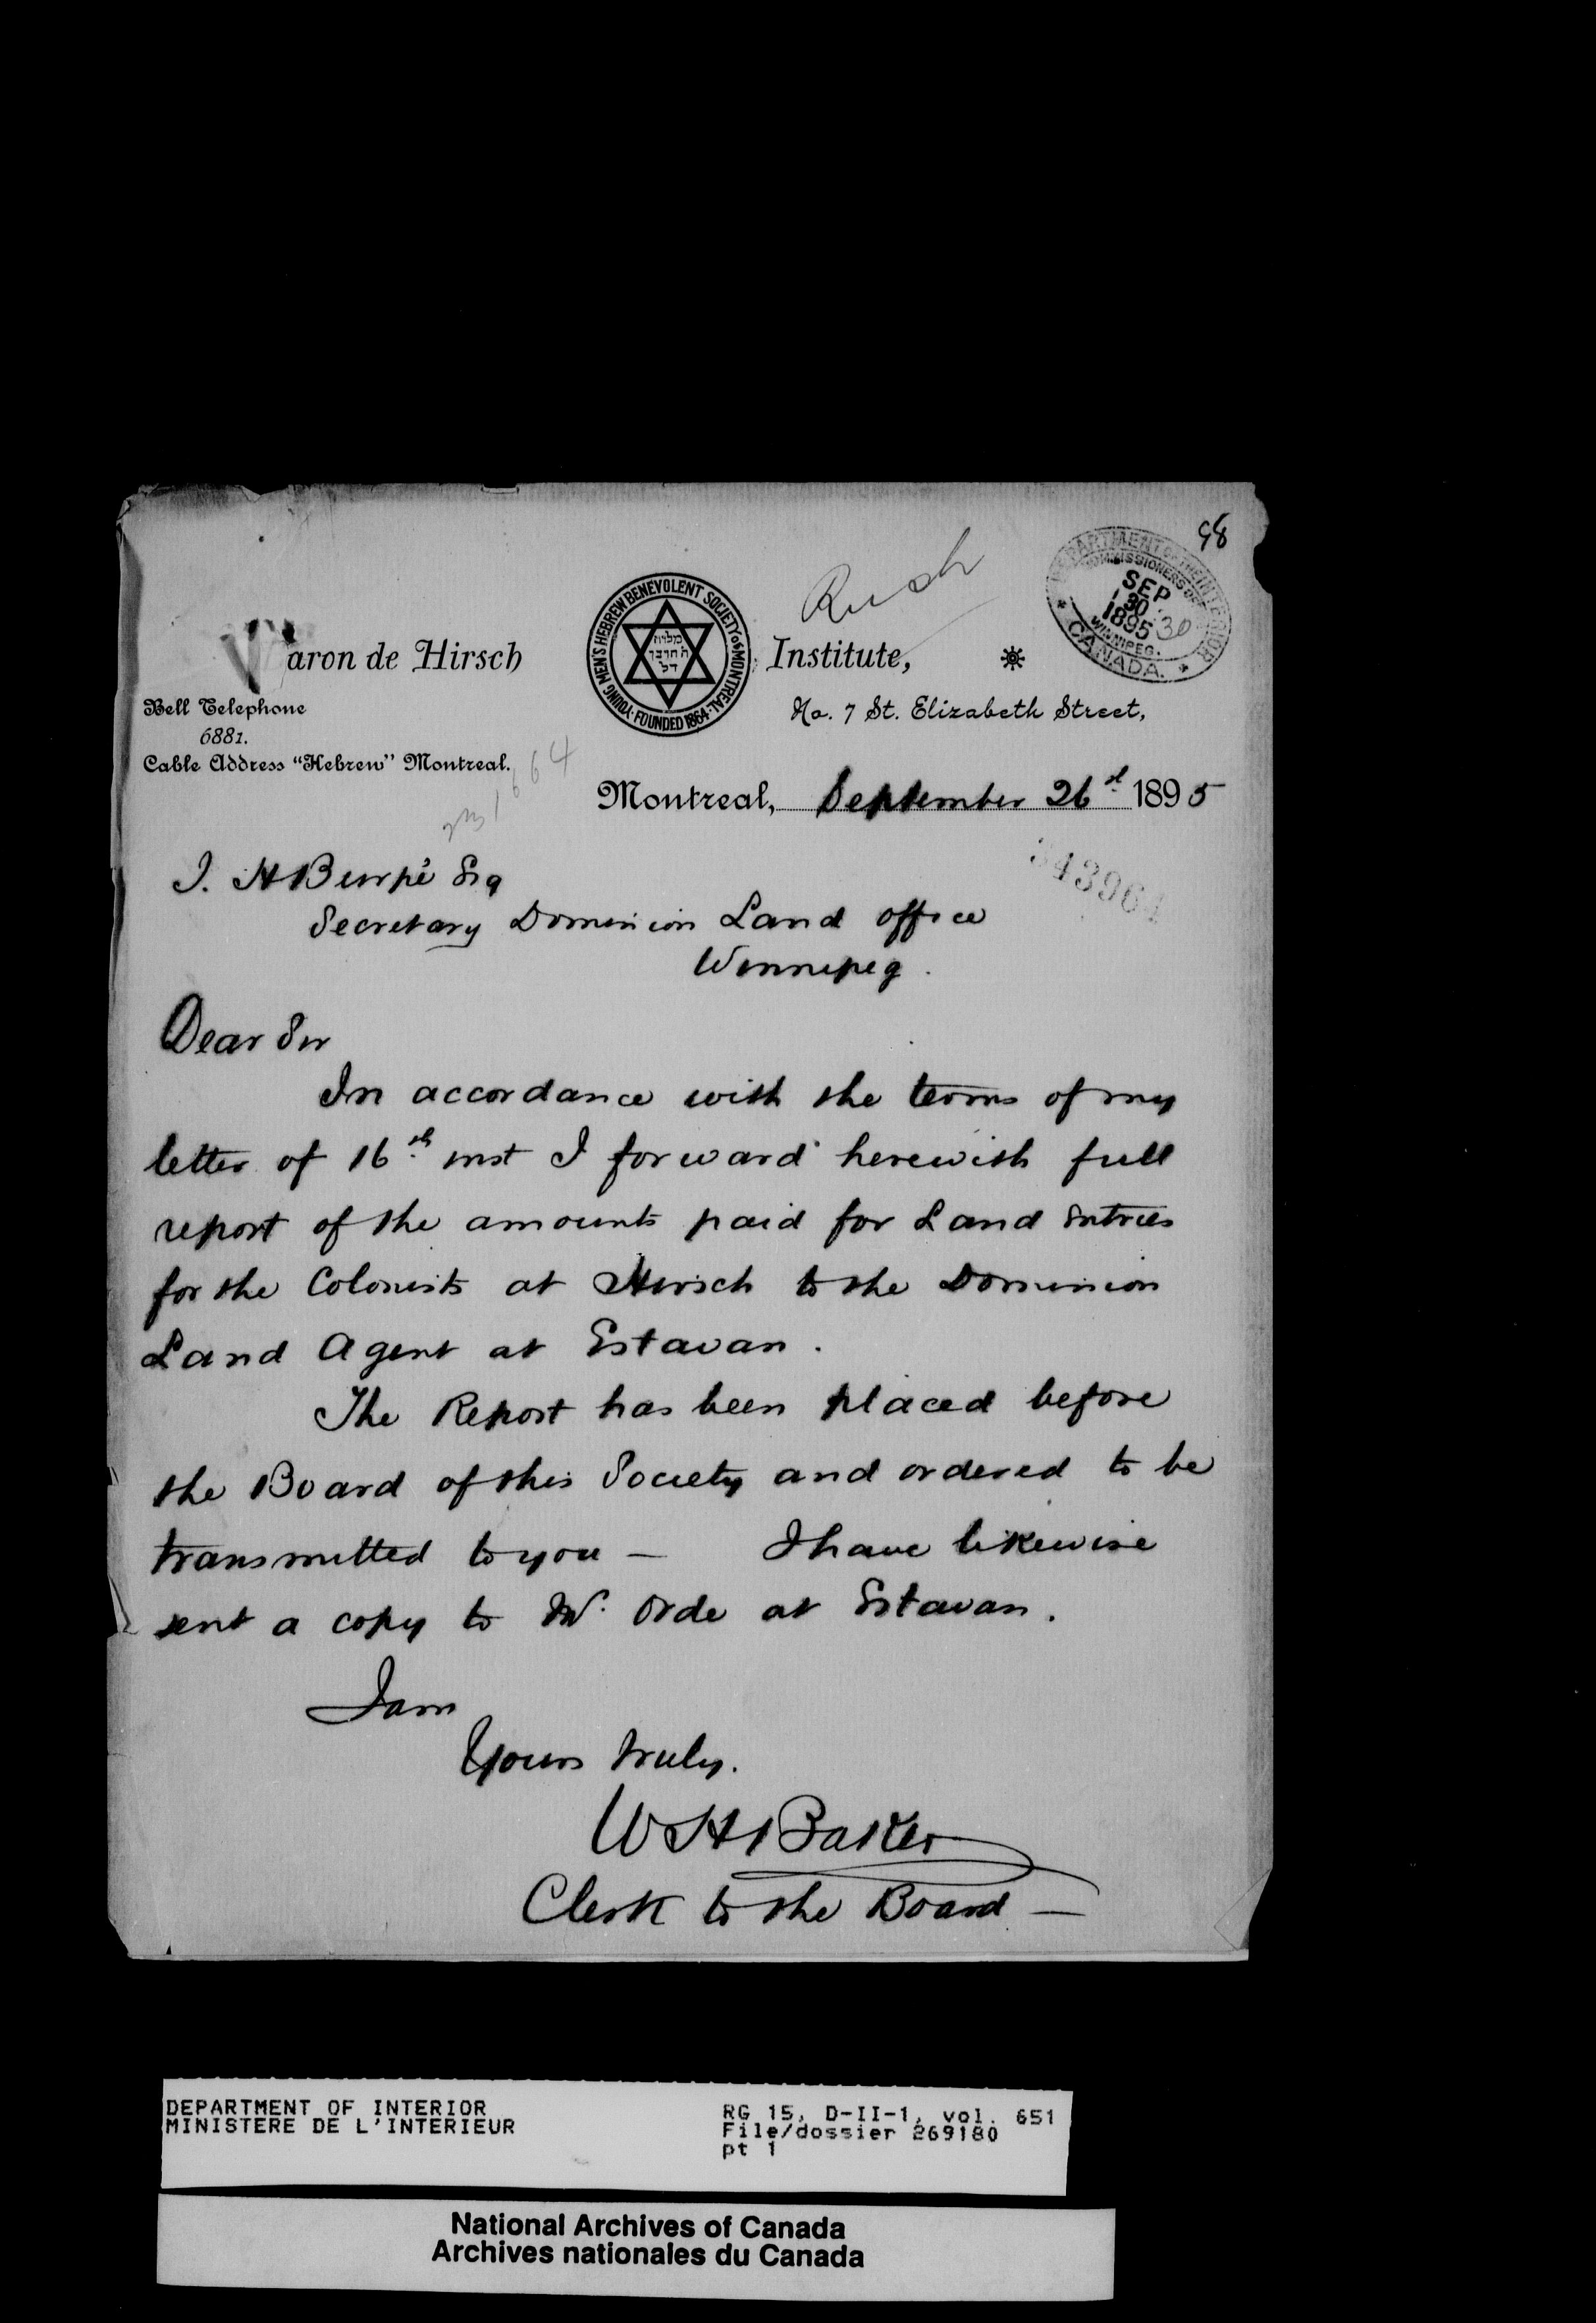 98
Rush
DEPARTMENT OF THE INTERIOR
COMMISSIONERS OFFICE
SEP
30
1895 30
WINNIPEG.
CANADA.
Baron de Hirsch
YOUNG MEN'S HEBREW BENEVOLENT SOCIETY of MONTREAL · FOUNDED 1864 ·
Institute,
Bell Telephone
6881.
Cable Address "Hebrew" Montreal.
No. 7 St. Elizabeth Street,
Montreal, September 26st 1895
343964
J. H Burpé Esq
Secretary Dominion Land office
Winnipeg.
Dear Sir
In accordance with the terms of my
letter of 16th inst I forward herewith full
report of the amounts paid for Land Entries
for the Colonists at Hirsch to the Dominion
Land Agent at Estavan.
The Report has been placed before
the Board of this Society and ordered to be
transmitted to you — I have likewise
sent a copy to Mr. Orde at Estavan.
I am
Yours truly.
W H Baker
Clerk to the Board —
DEPARTMENT OF INTERIOR
MINISTERE DE L'INTERIEUR
RG 15, D-II-1, vol. 651
File/dossier 269180
pt 1
National Archives of Canada
Archives nationales du Canada